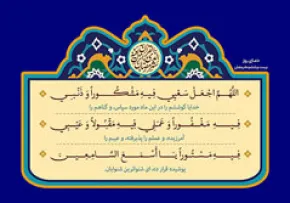 دعای روز
اللَّهُمَّ اجْعَلْ سَعْیِی فِیهِ مَشْکُوراً وَ ذَنْبِی
خدایا کوششم را در این ماه مورد سپاس، و گناهم را
فِیهِ مَغْفُوراً وَ عَمَلِی فِیهِ مَقْبُولاً وَ عَیْبِی
آمرزیده، و عملم را پذیرفته، و عیبم را
فِیهِ مَسْتُوراً یَا أَسْمَعَ السَّامِعِینَ
پوشیده قرار ده، ای شنواترین شنوایان.